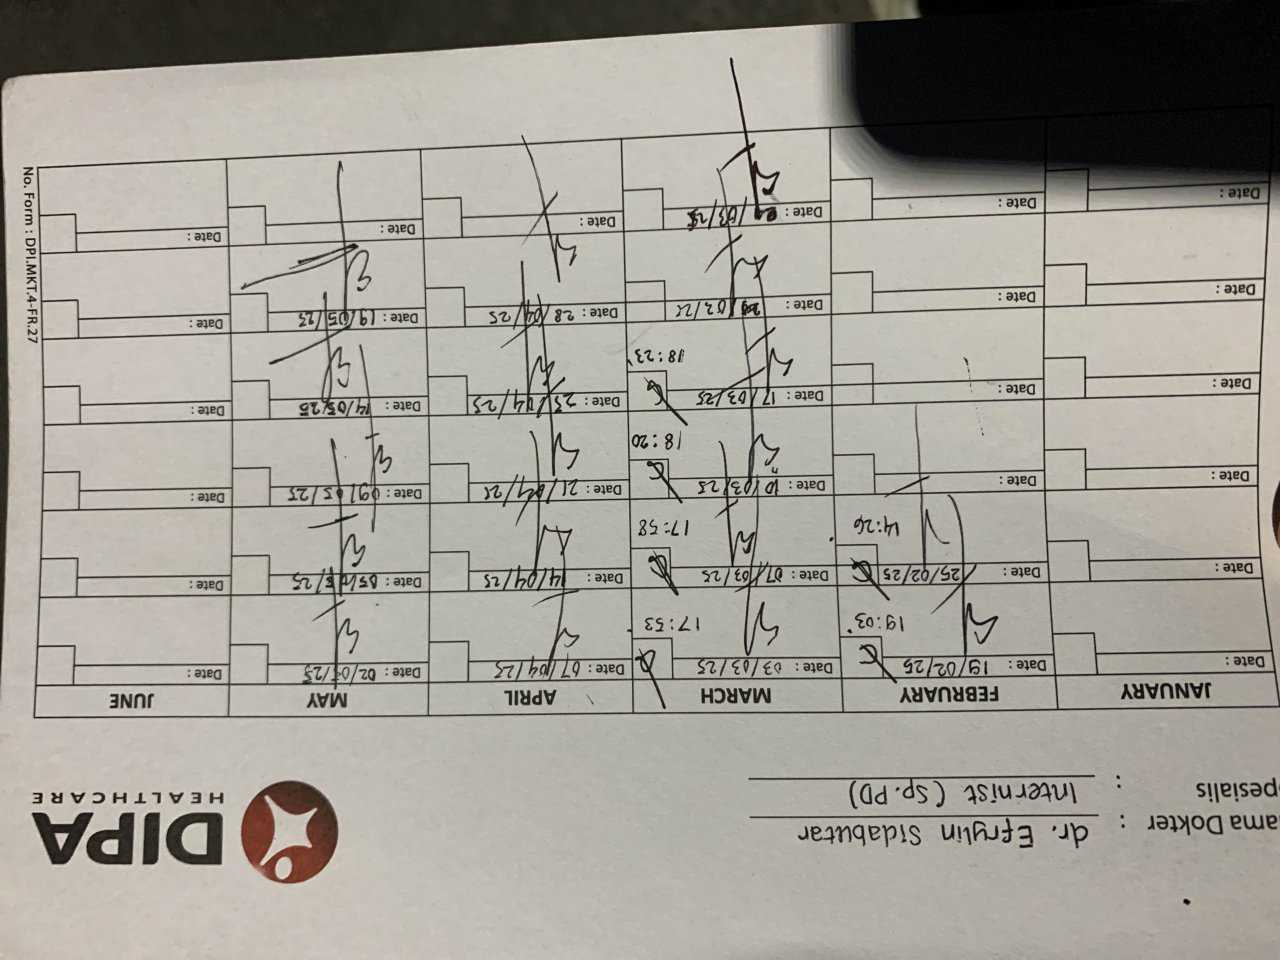 DIPA
HEALTHCARE
ama Dokter : dr. Efrylin Sidabutar
pesialis : Internist (Sp.PD)
JANUARY FEBRUARY MARCH APRIL MAY JUNE
Date: Date: 19/02/25 Date: 03/03/25 Date: 07/04/25 Date: 02/05/25 Date:
19:03 17:53
Date: Date: 25/02/25 Date: 07/03/25 Date: 14/04/25 Date: 05/05/25 Date:
14:26 17:58
Date: Date: Date: 10/03/25 Date: 21/04/25 Date: 09/05/25 Date:
18:20
Date: Date: Date: 17/03/25 Date: 25/04/25 Date: 14/05/25 Date:
18:23
Date: Date: Date: Date: 28/04/25 Date: 19/05/25 Date:
Date: Date: Date: Date: Date: Date:
No. Form : DPI.MKT.4-FR.27